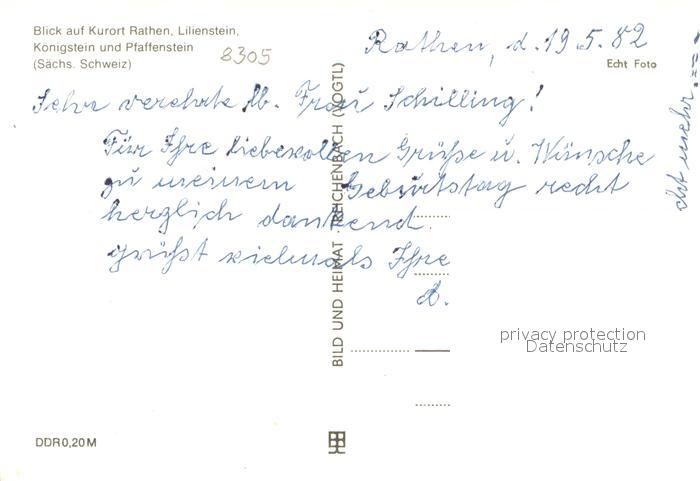 Blick auf Kurort Rathen, Lilienstein,
Königstein und Pfaffenstein
(Sächs. Schweiz)
8305
Rathen, d. 19.5.82
Echt Foto
Sehr verehrte lb. Frau Schilling!
Für Ihre liebevollen Grüße u. Wünsche
zu meinem Geburtstag recht
herzlich dankend
grüßt vielmals Ihre
d.
BILD UND HEIMAT · REICHENBACH (VOGTL)
mehr
privacy protection
Datenschutz
DDR 0,20 M